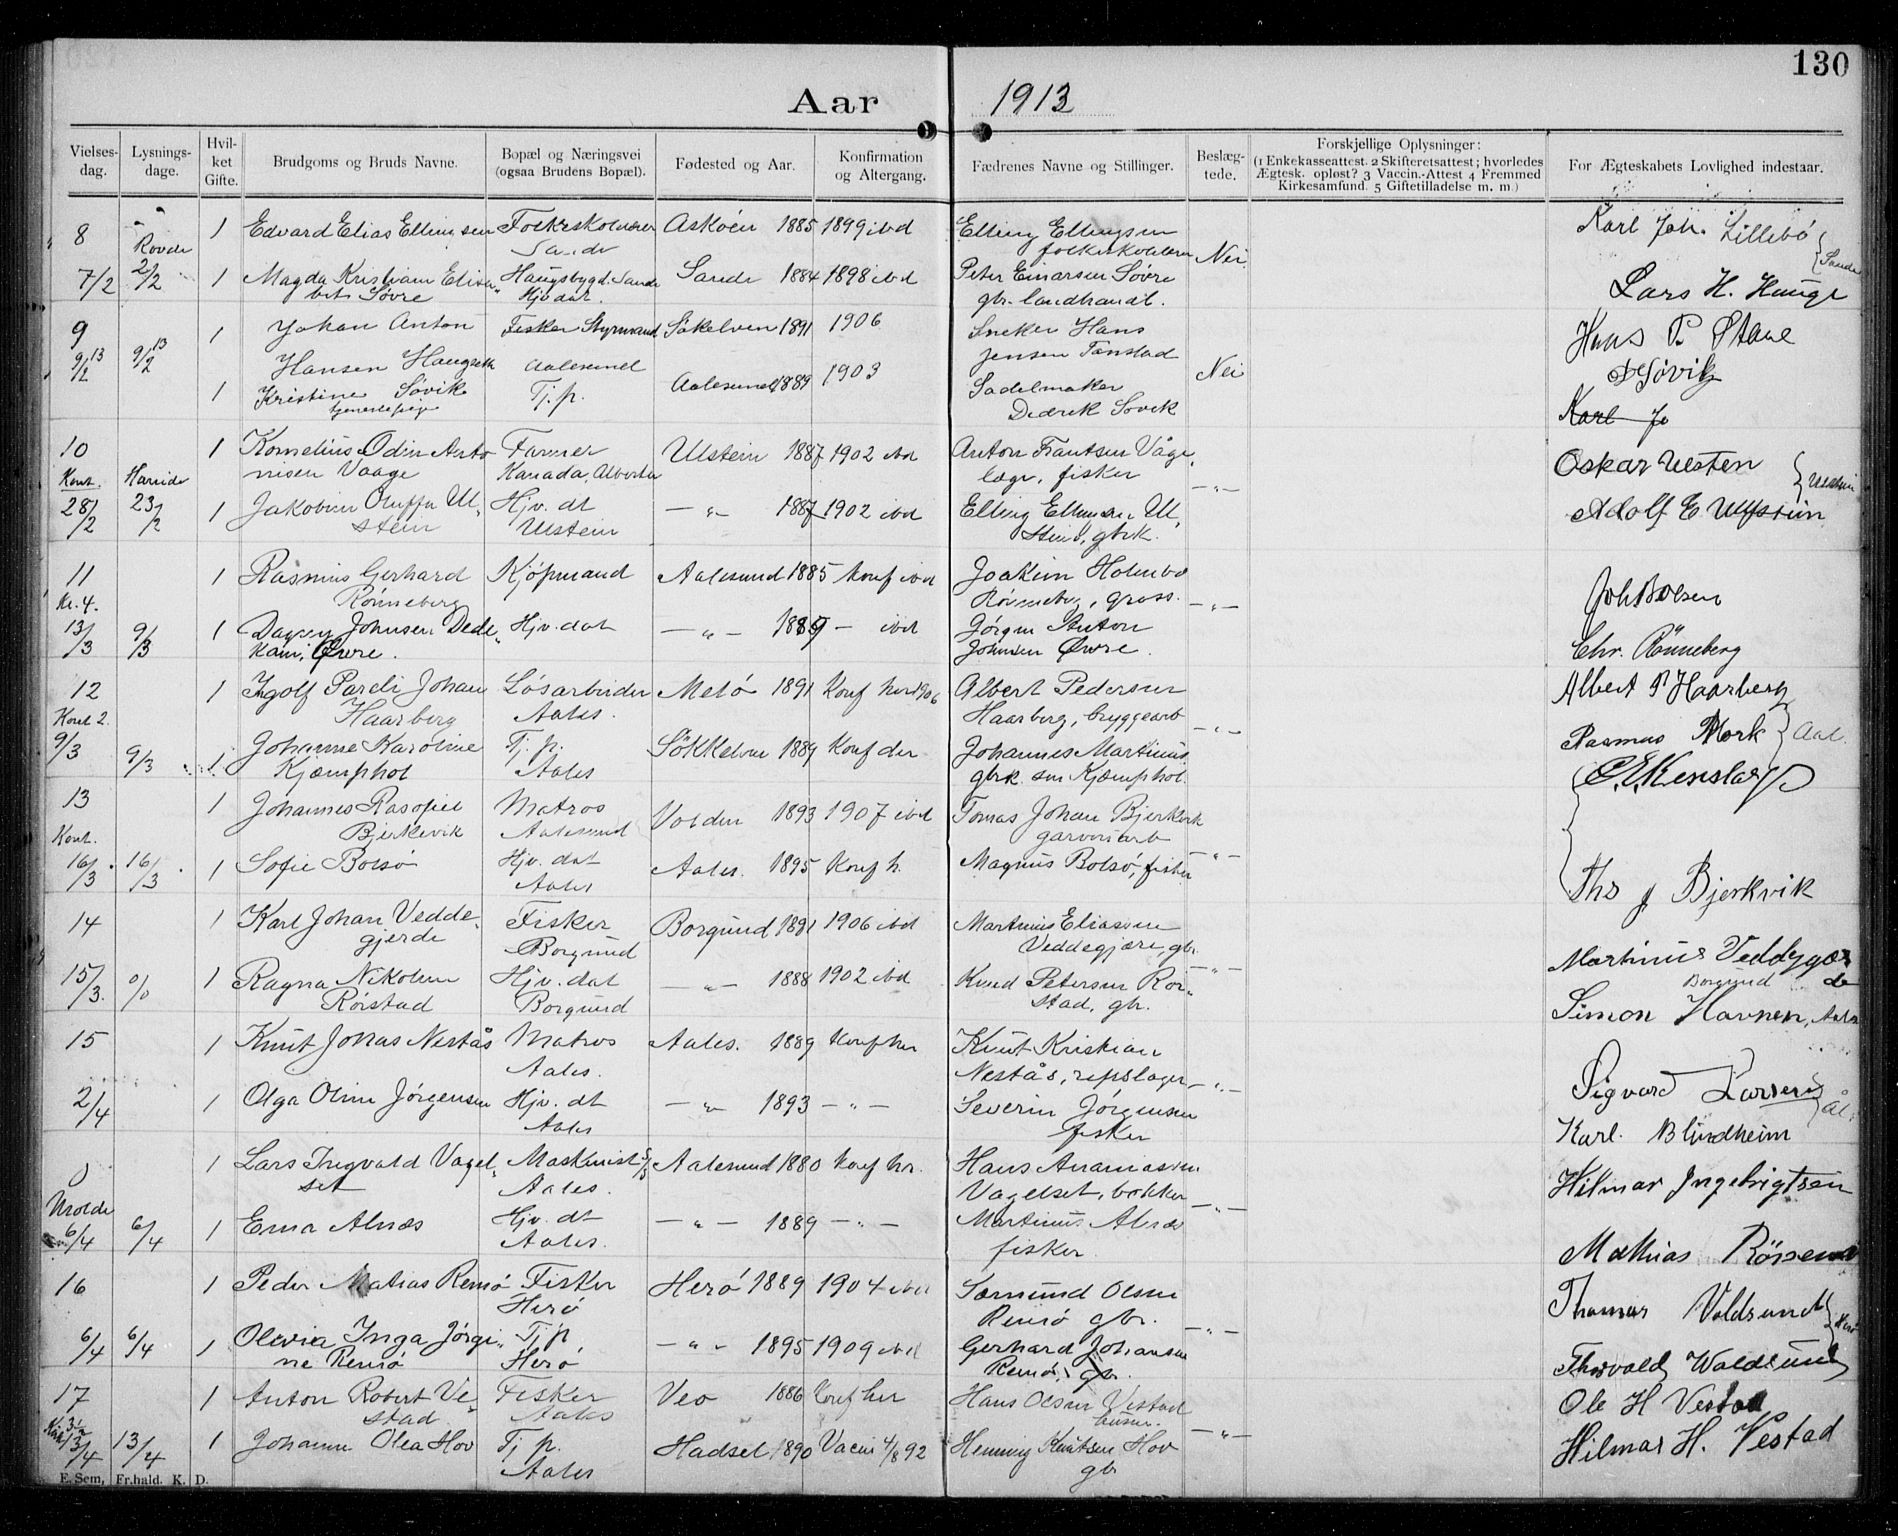 130
Aar 1913
Vielses-dag. Lysnings-dage. Hvil-ket Gifte. Brudgoms og Bruds Navne. Bopæl og Næringsvei (ogsaa Brudens Bopæl). Fødested og Aar. Konfirmation og Altergang. Fædrenes Navne og Stillinger. Beslæg-tede. Forskjellige Oplysninger: (1 Enkekasseattest. 2 Skifteretsattest; hvorledes Ægtesk. opløst? 3 Vaccin.-Attest 4 Fremmed Kirkesamfund. 5 Giftetilladelse m. m.) For Ægteskabets Lovlighed indestaar.
8 1 Edvard Elias Ellingsen Folkeskolelærer Askøen 1885 1899 ibd Elling Ellingsen Karl Joh. Lillebø
Rovde Sande folkeskolelærer Nei
7/2 2/2 1 Magda Kristiane Elisa- Haugsbygd. Sande Sande 1884 1898 ibd Peter Einarsen Søvre Sande
bet Søvre Hjv dat. gbr. landhandl. Lars H. Hauge
9 1 Johan Anton Fisker Styrmand Søkelven 1891 1906 Snekker Hans Hans P. Stave
9/2 13 9/2 13 Hansen Haugseth Aalesund Jensen Tanstad Nei
1 Kristine Søvik Tj. p. Aalesund 1889 1903 Sadelmaker D Søvik
tjenestepige Didrik Søvik Karl Jo
10 1 Kornelius Odin Anto- Farmer Ulstein 1887 1902 ibd Anton Frantsen Våge Oskar Ulsten
Kont. Hareide nisen Vaage Kanada, Alberta lægr, fisker -"- Ulstein
28/2 23/2 1 Jakobine Oluffa Ul- Hjv. dt -"- 1887 1902 ibd Elling Ellingsen Ul- Adolf E Ulstein
stein Ulstein stein, gbrk.
11 1 Rasmus Gerhard Kjøpmand Aalesund 1885 Konf ibd Joakim Holmbo Joh Bolsen
Kl. 4. Rønneberg Rønneberg, gross. -"-
13/3 9/3 1 Dagny Johnsen Dede- Hjv. dat -"- 1889 - ibd Jørgen Anton Chr. Rønneberg
kam, Øvre. Johnsen Øvre.
12 1 Ingolf Pareli Johan Løsarbeider Melø 1891 Konf her 1906 Albert Pedersen Albert P Haarberg
Kont 2. Haarberg Aales. Haarberg, bryggearb -"-
9/3 9/3 1 Johanne Karoline Tj. p. Søkkelven 1889 Konf der Johannes Martinus Rasmus Mork Aal.
Kjæmphol Aales gbrk. sm Kjæmphol.
13 1 Johannes Rasofiel Matros Volden 1893 1907 ibd Tomas Johan Bjerkvik
Kont. Bjerkevik Aalesund garveriarb -"-
16/3 16/3 1 Sofie Bolsø Hjv. dat Aales. 1895 Konf h. Magnus Bolsø, fisker Ths J Bjerkvik
Aales
14 1 Karl Johan Vedde- Fisker Borgund 1891 1906 ibd Martinus Eliassen Martinus Veddegjær-
gjerde Borgund Veddegjære, gbr. -"- Borgund de
15/3. 0/0 1 Ragna Nikoline Hjv. dat -"- 1888 1902 ibd Knud Petersen Röi- Simon Havnen, Aales
Röistad Borgund stad, gbr.
15 1 Knut Jonas Nestås Matros Aales. 1889 Konf her Knut Kristian Sigvard Larsen
Aales. Nestås, repslager -"- Ål.
2/4 1 Olga Oline Jørgensen Hjv. dt -"- 1893 -"- Severin Jørgensen Karl. Blindheim
Aales fisker
0 1 Lars Ingvald Vagel- Maskinist S/S Aalesund 1880 Konf her. Hans Ananiassen Hilmar Ingebrigtsen
Molde set Aales. Vagelset, bøkker -"-
6/4 6/4 1 Erna Alnæs Hjv. dt -"- 1889 -"- Martinus Alnæs Mathias Rösen
Aales. fisker.
16 1 Peder Matias Remø Fisker Herø 1889 1904 ibd Sæmund Olsen Thomas Voldsund
Herø Remø gbr. -"- Herø
6/4 6/4 1 Olevia Inga Jørgi- Tj p -"- 1895 1909 ibd Gerhard Johansen Thorvald Woldsund
ne Remø Herø Remø, gbr.
17 1 Anton Robert Ve- Fisker Veø 1886 Konf her Hans Olsen Vestad Ole H Vestad
stad Aales husm. -"-
13/4 13/4 1 Johanne Olea Hov Tj p. Hadsel 1890 Vacin 4/8 92 Henning Knutsen Hov Hilmar H. Vestad
Aales gb
E. Sem, Fr.hald. K. D.